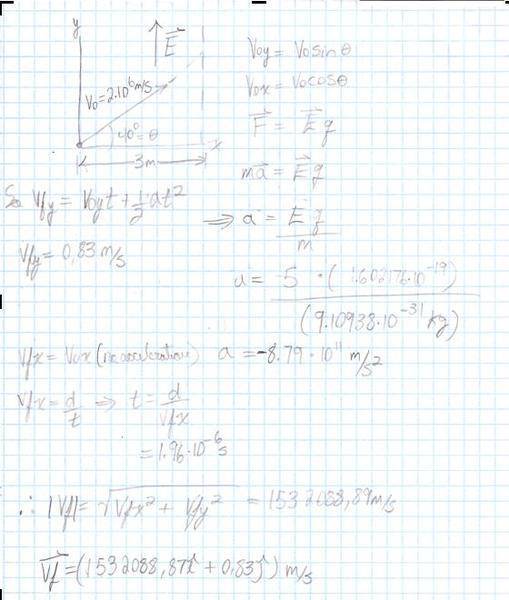 y
E⃗
V₀=2·10⁶m/s
40°=θ
x
3m
V₀y = V₀sinθ
V₀x = V₀cosθ
F⃗ = E⃗q
ma⃗ = E⃗q
Vfy = V₀yt + ½at²
⇒ a⃗ = E⃗q / m
Vfy = 0,83 m/s
a = -5 · (1.602176·10⁻¹⁹) / (9.10938·10⁻³¹ kg)
Vfx = V₀x (no acceleration) a = -8.79·10¹¹ m/s²
Vfx = d/t ⇒ t = d/Vfx
= 1.96·10⁻⁶s
∴ |Vf| = √(Vfx² + Vfy²) = 1532088,89m/s
V⃗f = (1532088,87î + 0.83ĵ) m/s